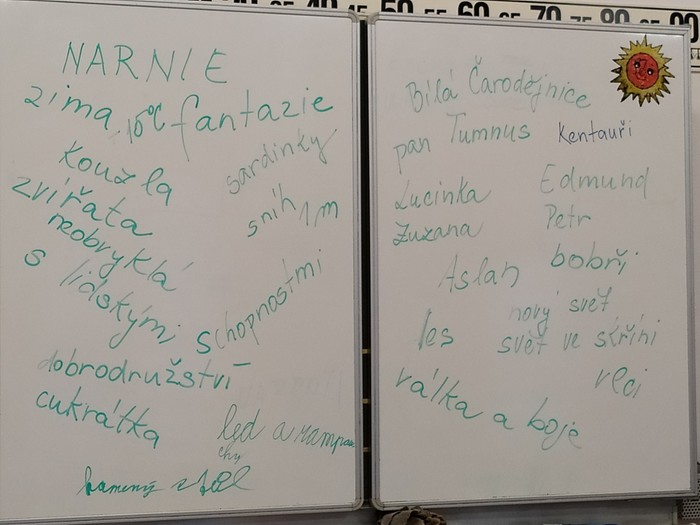 40 45 50 55 60 65 70 75 80 85 90
NARNIE
zima 15°C fantazie
Kouzla
sardinky
zvířata
sníh 1m
neobyklá
s lidskými schopnostmi
dobrodružství
cukrátka
led a rampouchy
kamený stůl
Bílá Čarodějnice
pan Tumnus
Kentauři
Lucinka
Edmund
Zuzana
Petr
Aslan
bobři
nový svět
les
svět ve skříni
válka a boje